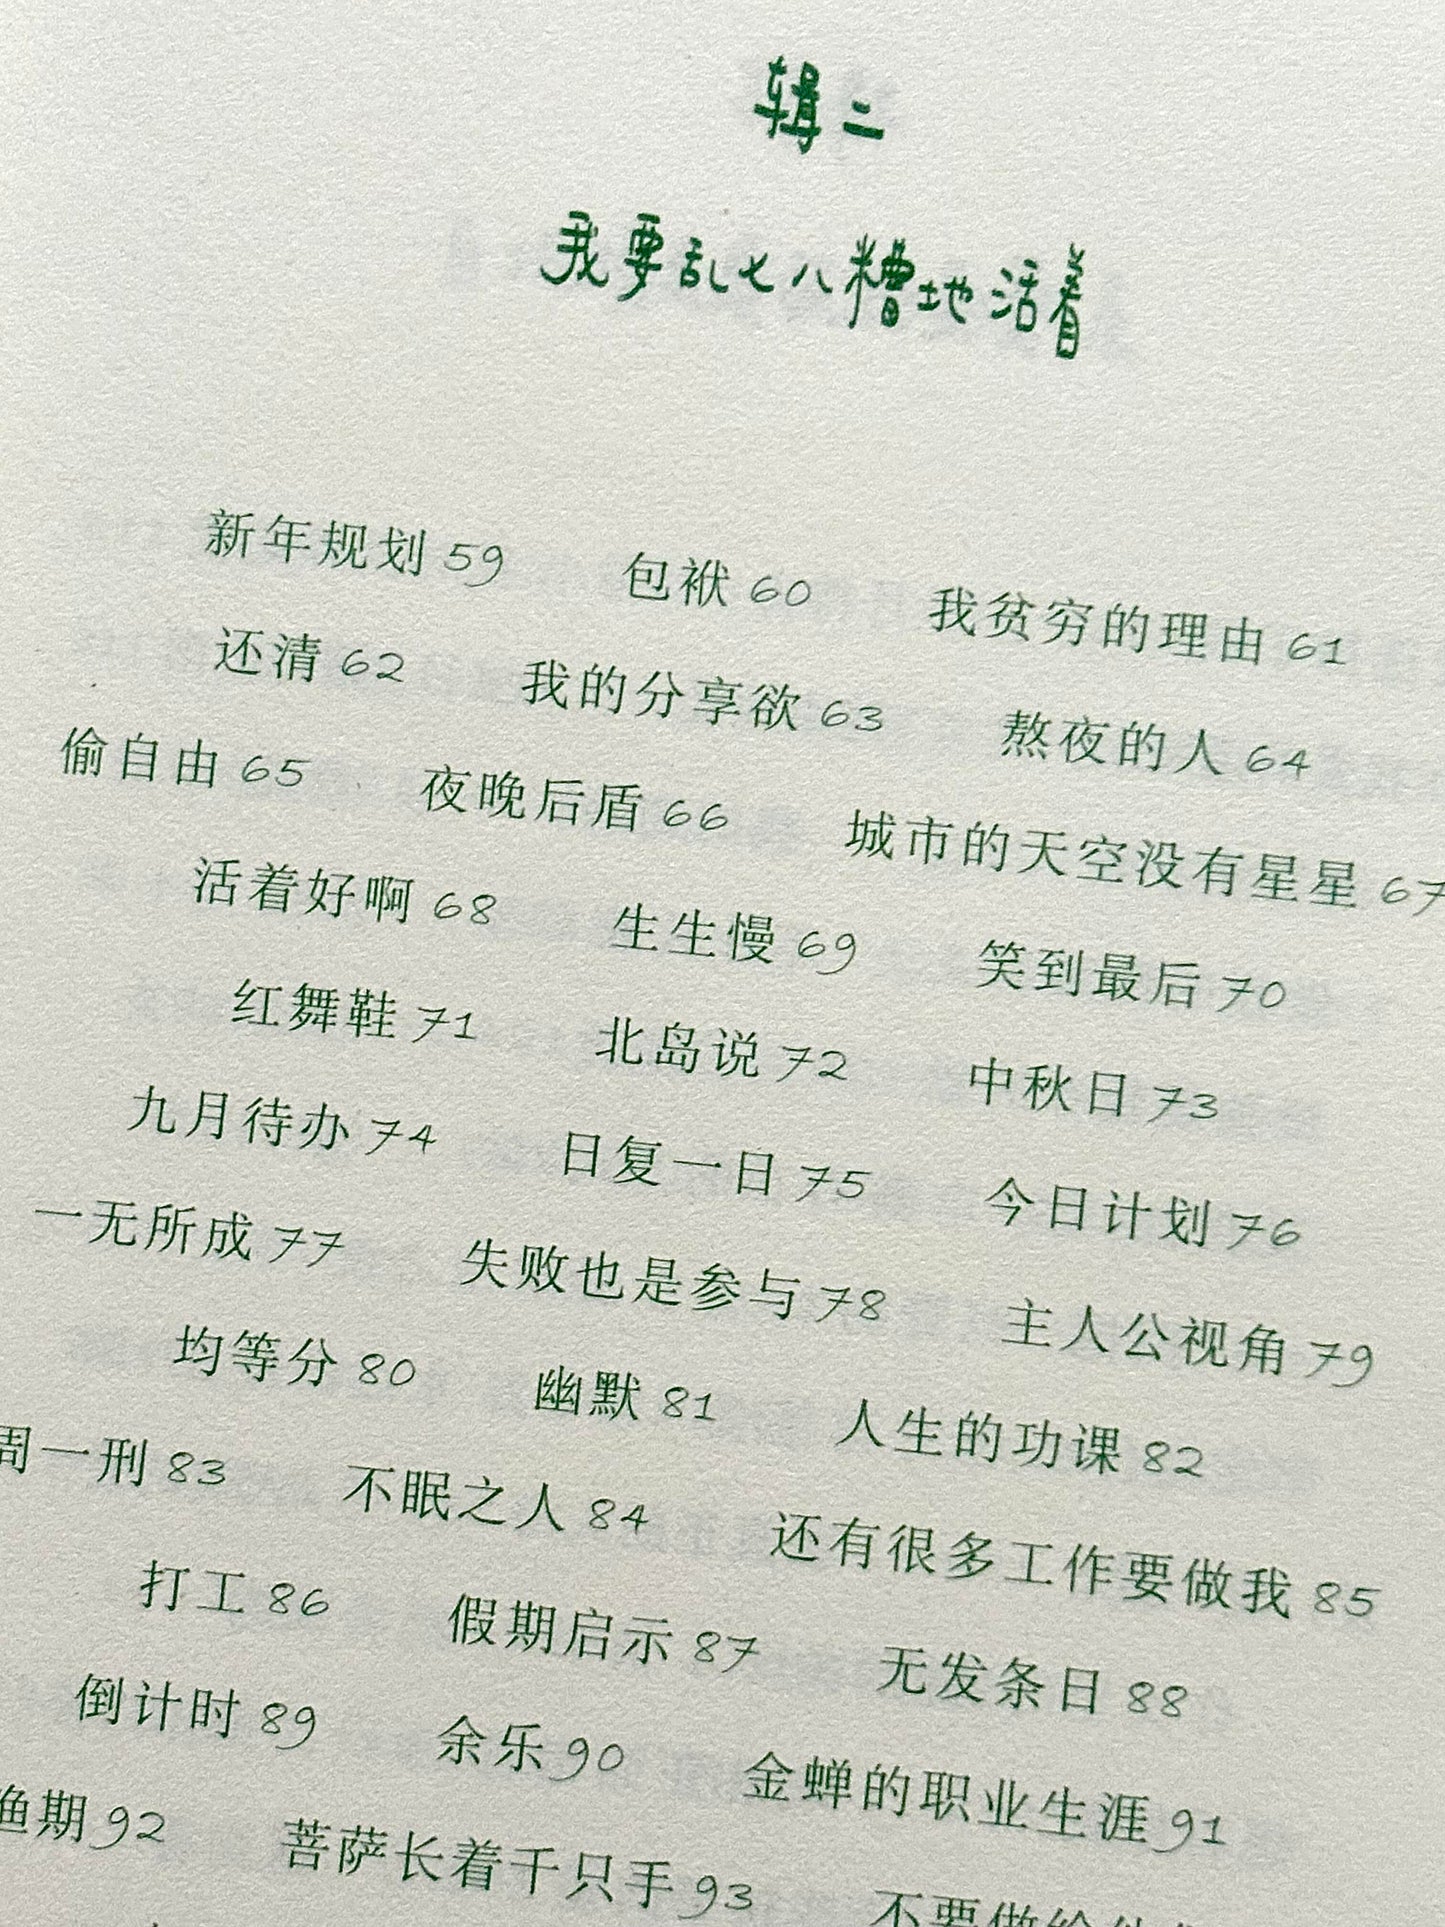 辑二
我要乱七八糟地活着
新年规划 59 包袱 60 我贫穷的理由 61
还清 62 我的分享欲 63 熬夜的人 64
偷自由 65 夜晚后盾 66 城市的天空没有星星 67
活着好啊 68 生生慢 69 笑到最后 70
红舞鞋 71 北岛说 72 中秋日 73
九月待办 74 日复一日 75 今日计划 76
一无所成 77 失败也是参与 78 主人公视角 79
均等分 80 幽默 81 人生的功课 82
周一刑 83 不眠之人 84 还有很多工作要做我 85
打工 86 假期启示 87 无发条日 88
倒计时 89 余乐 90 金蝉的职业生涯 91
渔期 92 菩萨长着千只手 93 不要做给